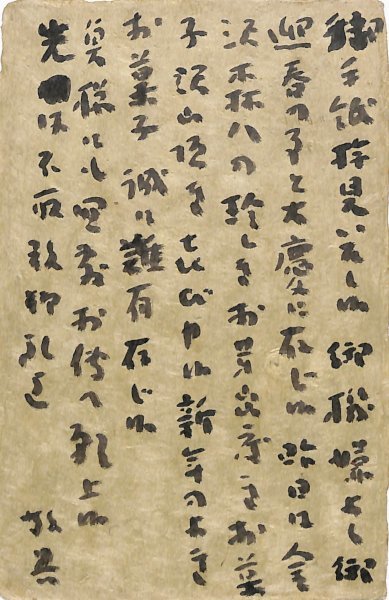 御手紙拝見いたし候 御機嫌よく御
迎春の事と大慶に存じ候 昨日は金
沢森八の珍しきお芽出度きお菓
子沢山頂き よろこび申候 新年のよき
お菓子 誠に難有存じ候
奥様にも宜敷お伝へ願上候
先は不取敢御礼迄 敬具